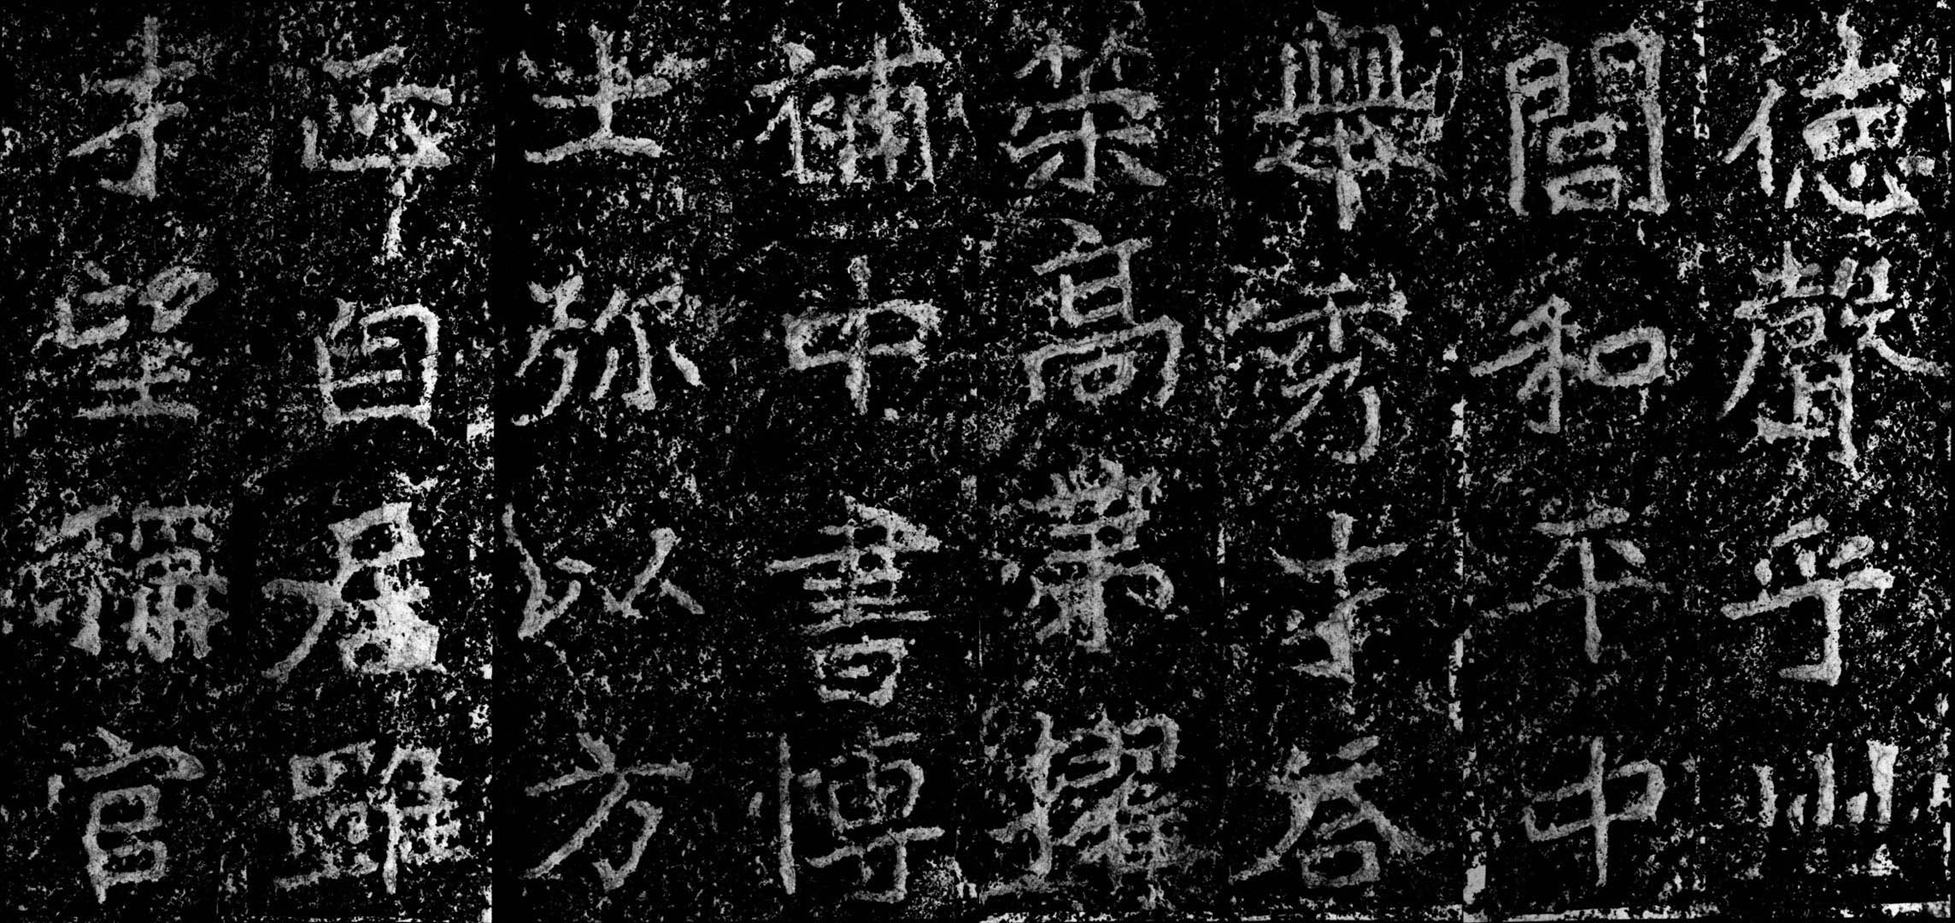 德聲乎州
閭和平中
舉秀才答
策高第擢
補中書博
士弥以方
正自居雖
才望稱官